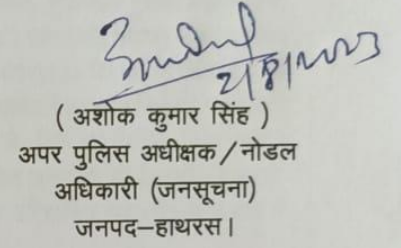 2/8/2023
( अशोक कुमार सिंह )
अपर पुलिस अधीक्षक/नोडल
अधिकारी (जनसूचना)
जनपद-हाथरस।